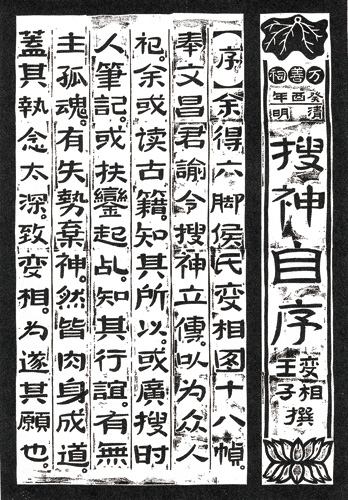 万善祠
癸酉年
清明
搜神自序
变相
王子
撰
【序】余得六脚侯氏变相图十八幀。
奉文昌君諭令搜神立傳。以为众人
祀。余或读古籍知其所以。或廣搜时
人筆記。或扶鑾起乩。知其行誼有無
主孤魂。有失勢棄神。然皆肉身成道。
蓋其執念太深。致变相。为遂其願也。